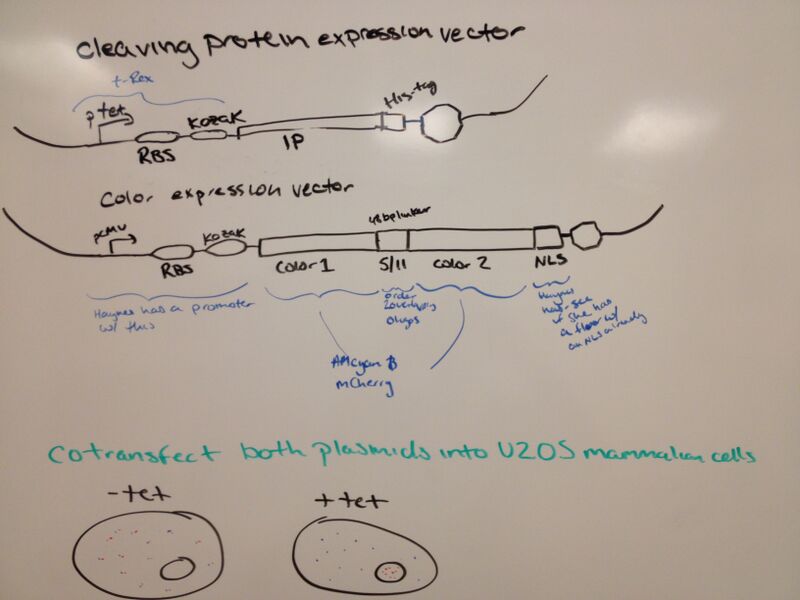 cleaving protein expression vector
t-Rex
ptet
RBS
Kozak
IP
His-tag
Color expression vector
pCMV
RBS
Kozak
Color 1
48bp linker
S/11
Color 2
NLS
Haynes has a promoter
w/ this
order
2 overlapping
oligos
Haynes
has-see
if she has
a fluor w/
an NLS already
AmCyan &
mCherry
Cotransfect both plasmids into U2OS mammalian cells
-tet
+tet